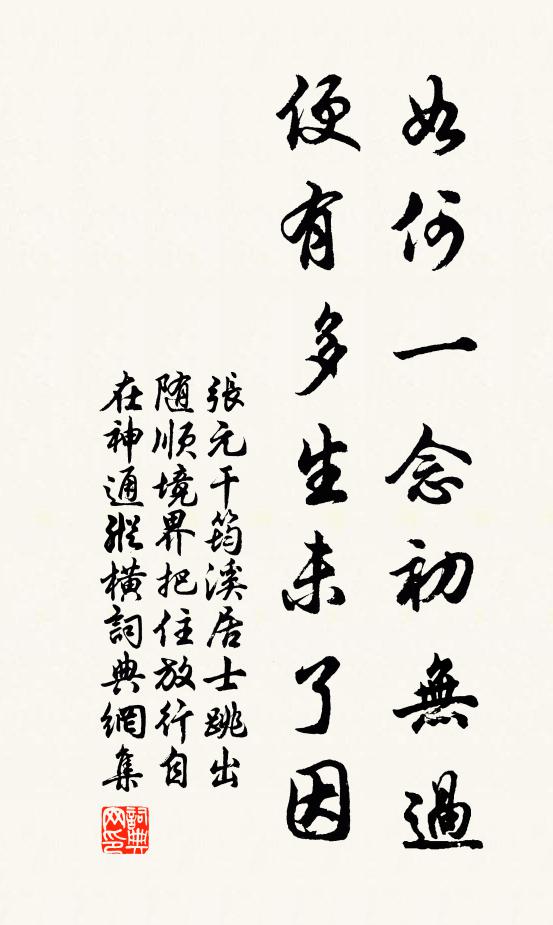 如何一念初無過
便有多生未了因
張元干筠溪居士跳出
随順境界把住放行自
在神通縱橫詞典網集
詞典網印